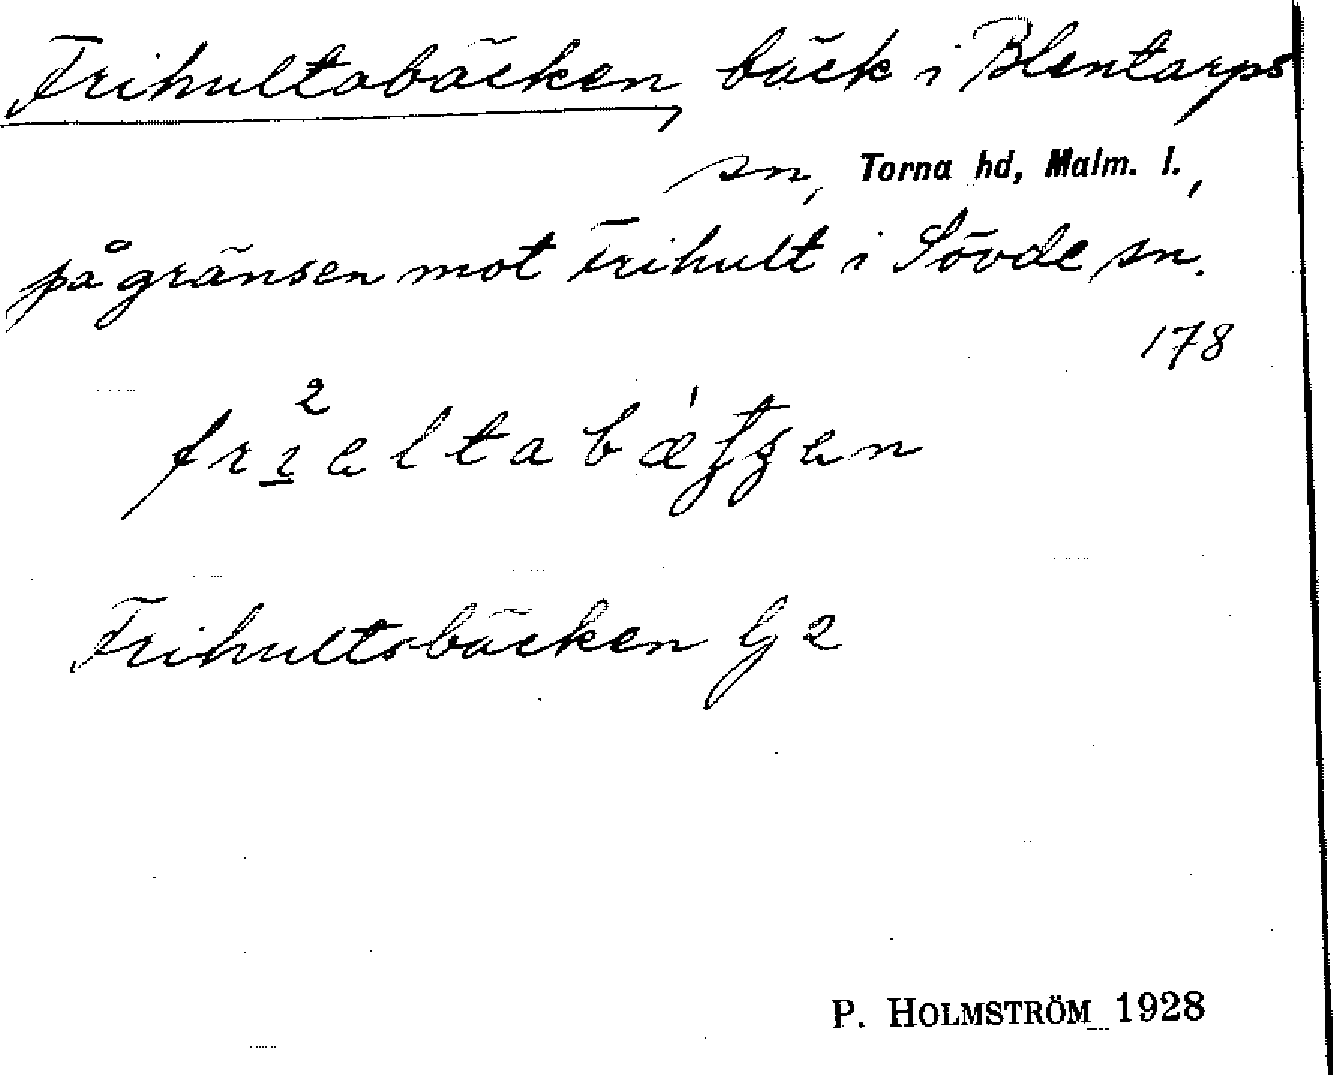 Frihultabäcken, bäck i Blentarps
sn, Torna hd, Malm. l.,
på gränsen mot Frihult i Sövde sn.
178
Frihultsbäcken G 2
P. HOLMSTRÖM 1928